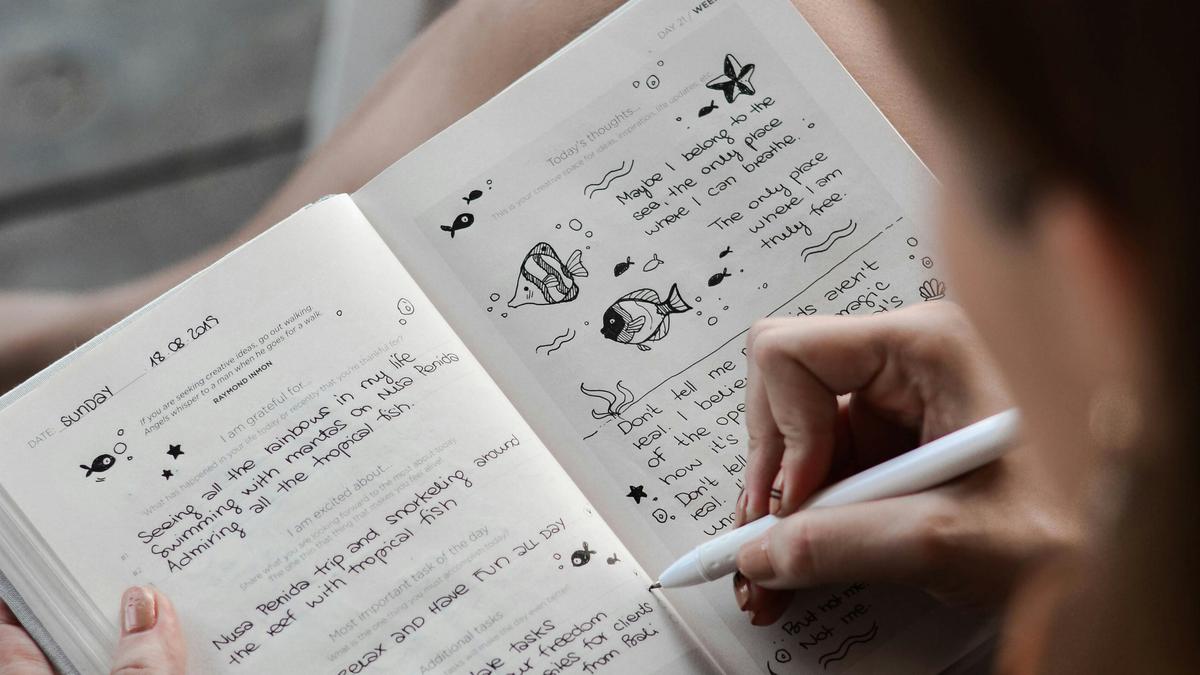 DATE: SUNDAY 18.08.2019
If you are seeking creative ideas, go out walking.
Angels whisper to a man when he goes for a walk.
RAYMOND INMON
I am grateful for...
What has happened in your life today or recently that you're thankful for?
#1 Seeing all the rainbows in my life
#2 Swimming with mantas on Nusa Penida
Admiring all the tropical fish.
I am excited about...
Share what you are looking forward to the most about today
The one thing that makes you feel alive!
Nusa Penida trip and snorkeling around
the reef with tropical fish
Most important task of the day
What is the one thing you must accomplish today?
Relax and have fun all day
Additional tasks
tasks will make the day even better!
tasks
our freedom
for clients
from Bali
DAY 21 /
Today's thoughts...
This is your creative space for ideas, inspiration, life updates, etc.
Maybe I belong to the
sea, the only place
where I can breathe.
The only place
where I am
truly free.
aren't
magic
Don't tell me
real. I
of the
how it's
Don't tell
real.
But not me.
Not me.